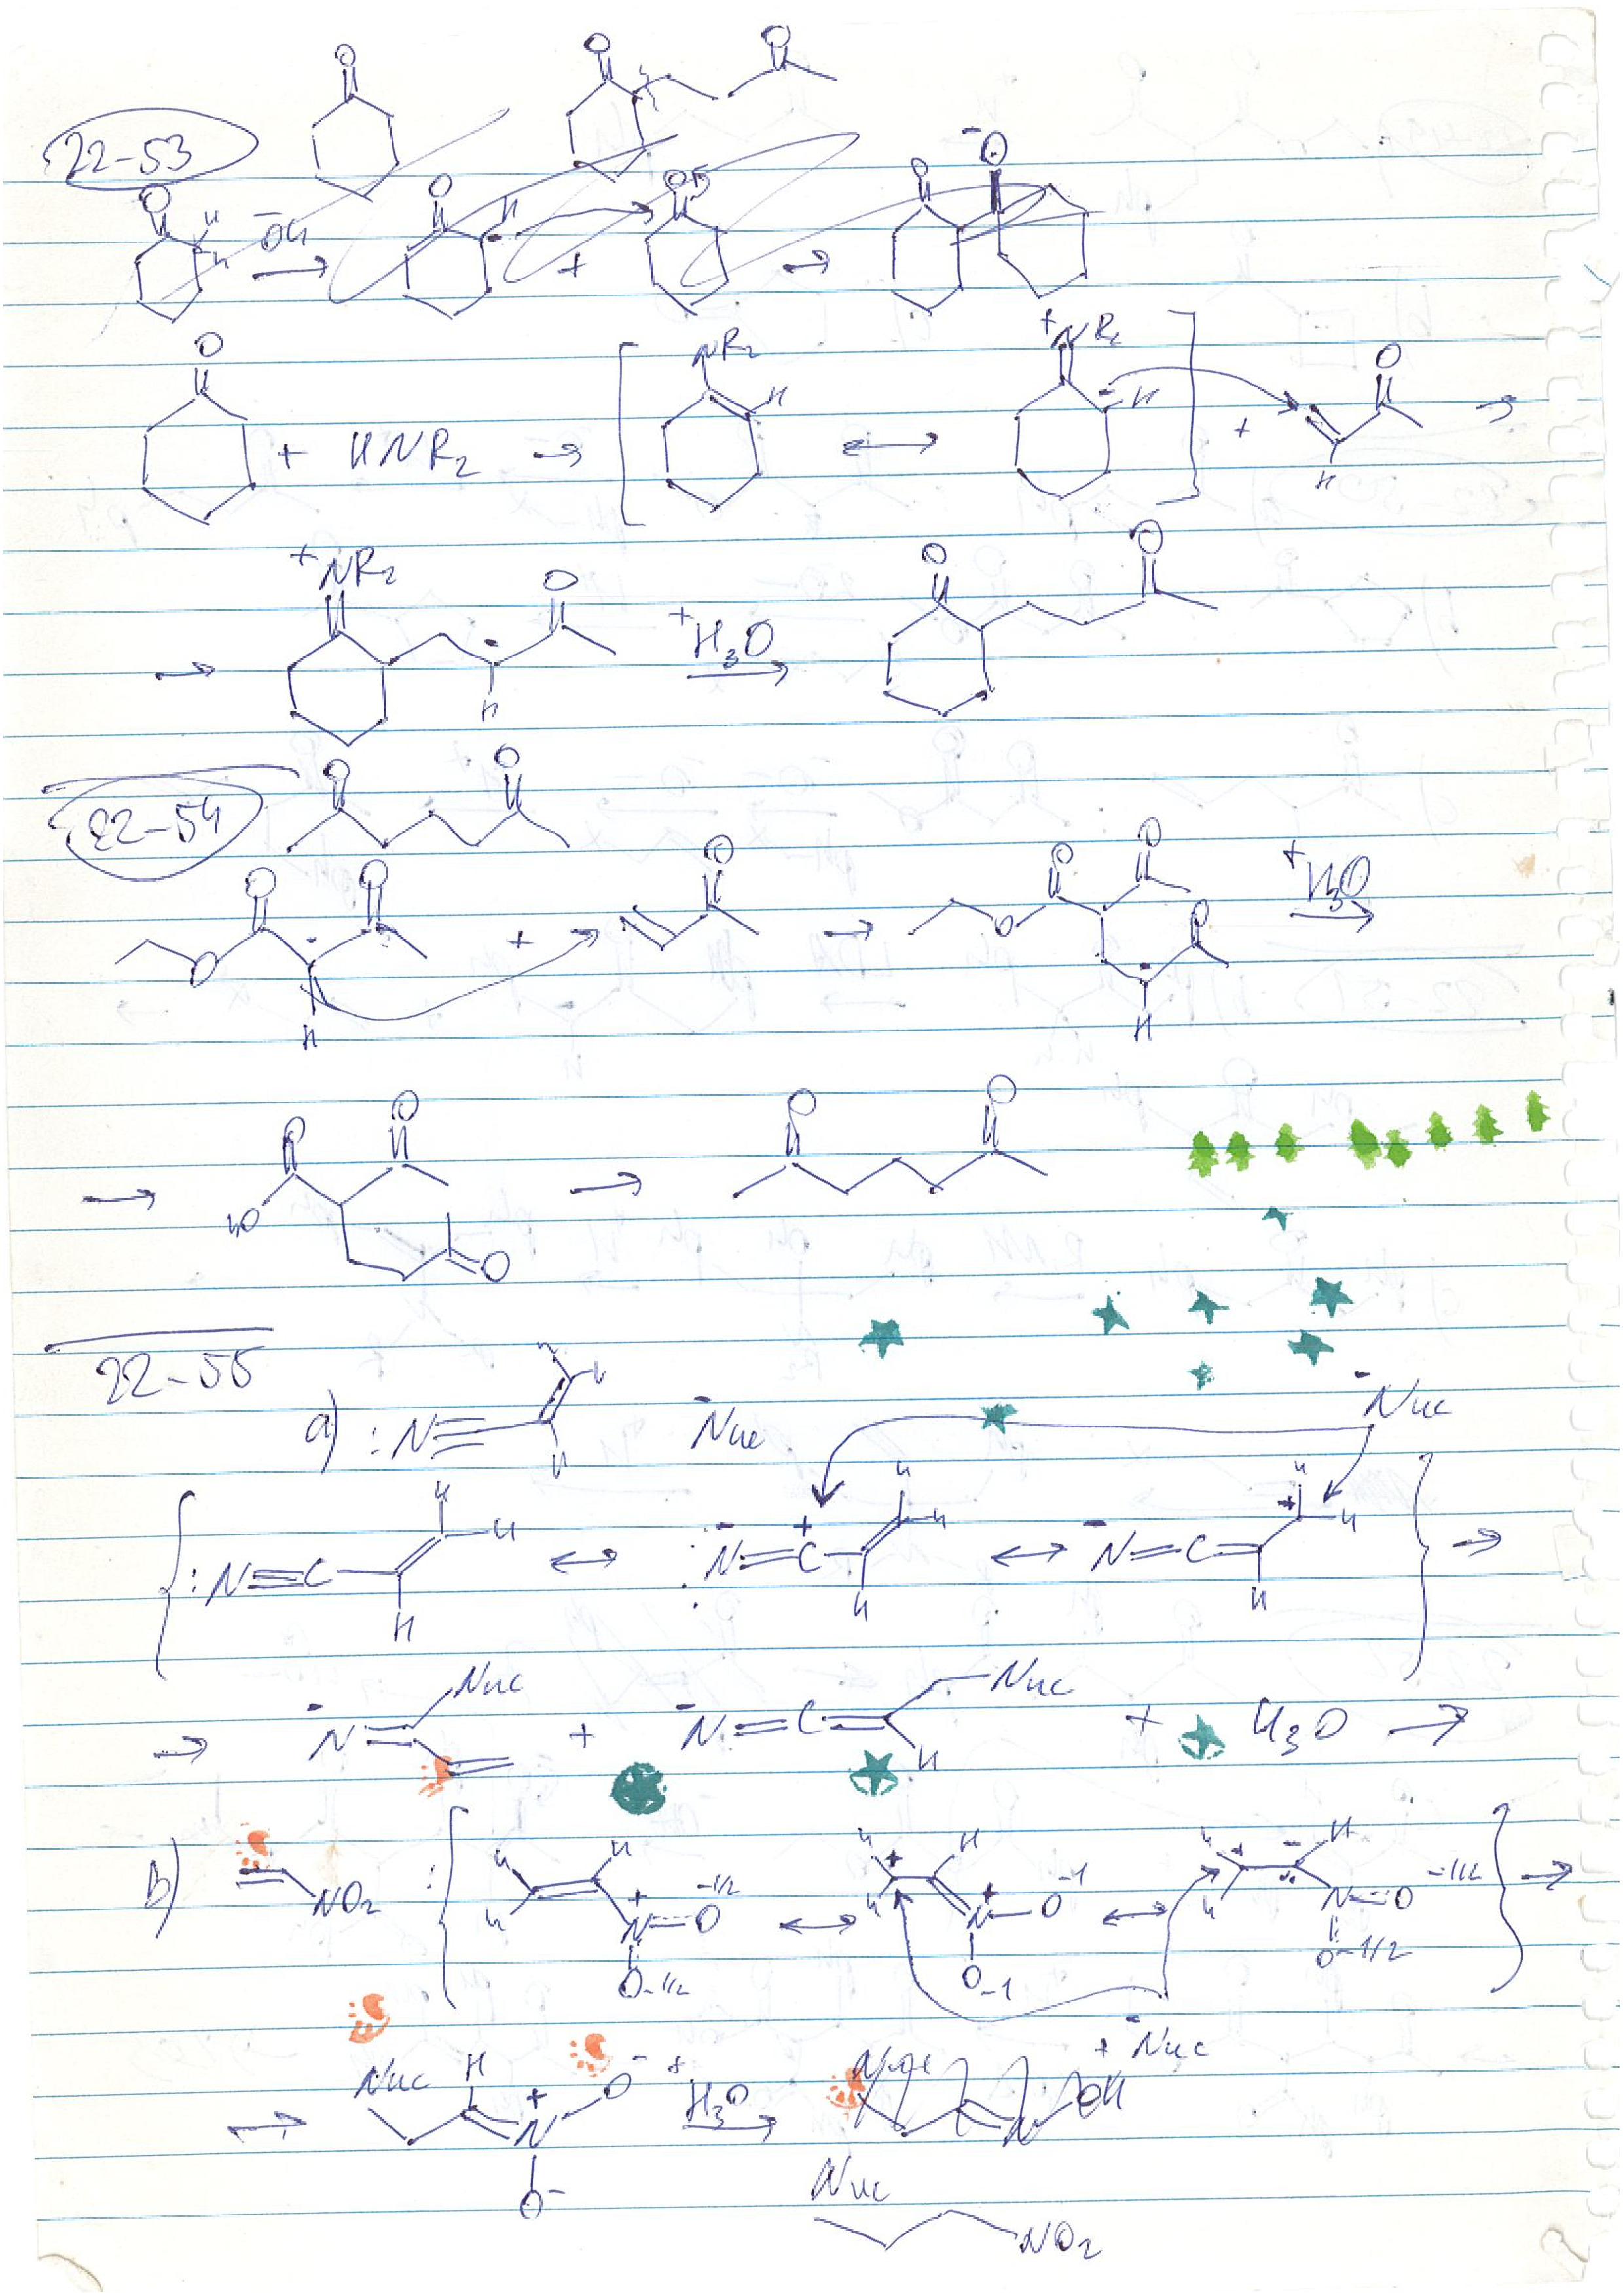 22-53
O O O
O H H ⁻OH → O H + O → O ⁻O
O + HNR₂ → [ NR₂ H ↔ ⁺NR₂ H ] + O H →
→ ⁺NR₂ O H ⁺H₃O → O O
22-54 O O
O O O H + O → O O O O H ⁺H₃O →
→ HO O O O → O O
22-55
a) :N≡ H H H ⁻Nuc ⁻Nuc
{ :N≡C H H H ↔ ⁻:N=C⁺ H H H ↔ ⁻N=C= H ⁺ H H } →
→ ⁻N= Nuc + ⁻N=C= Nuc H + H₃O →
b) NO₂ : { H H H ⁺N O -1/2 O-1/2 ↔ H H ⁺ H ⁺N O -1 O-1 ↔ H H ⁺ ⁻ H N=O -1/2 O-1/2 } →
+ ⁻Nuc
→ Nuc H ⁺N O⁻ O⁻ ⁺H₃O → Nuc N OH
Nuc NO₂